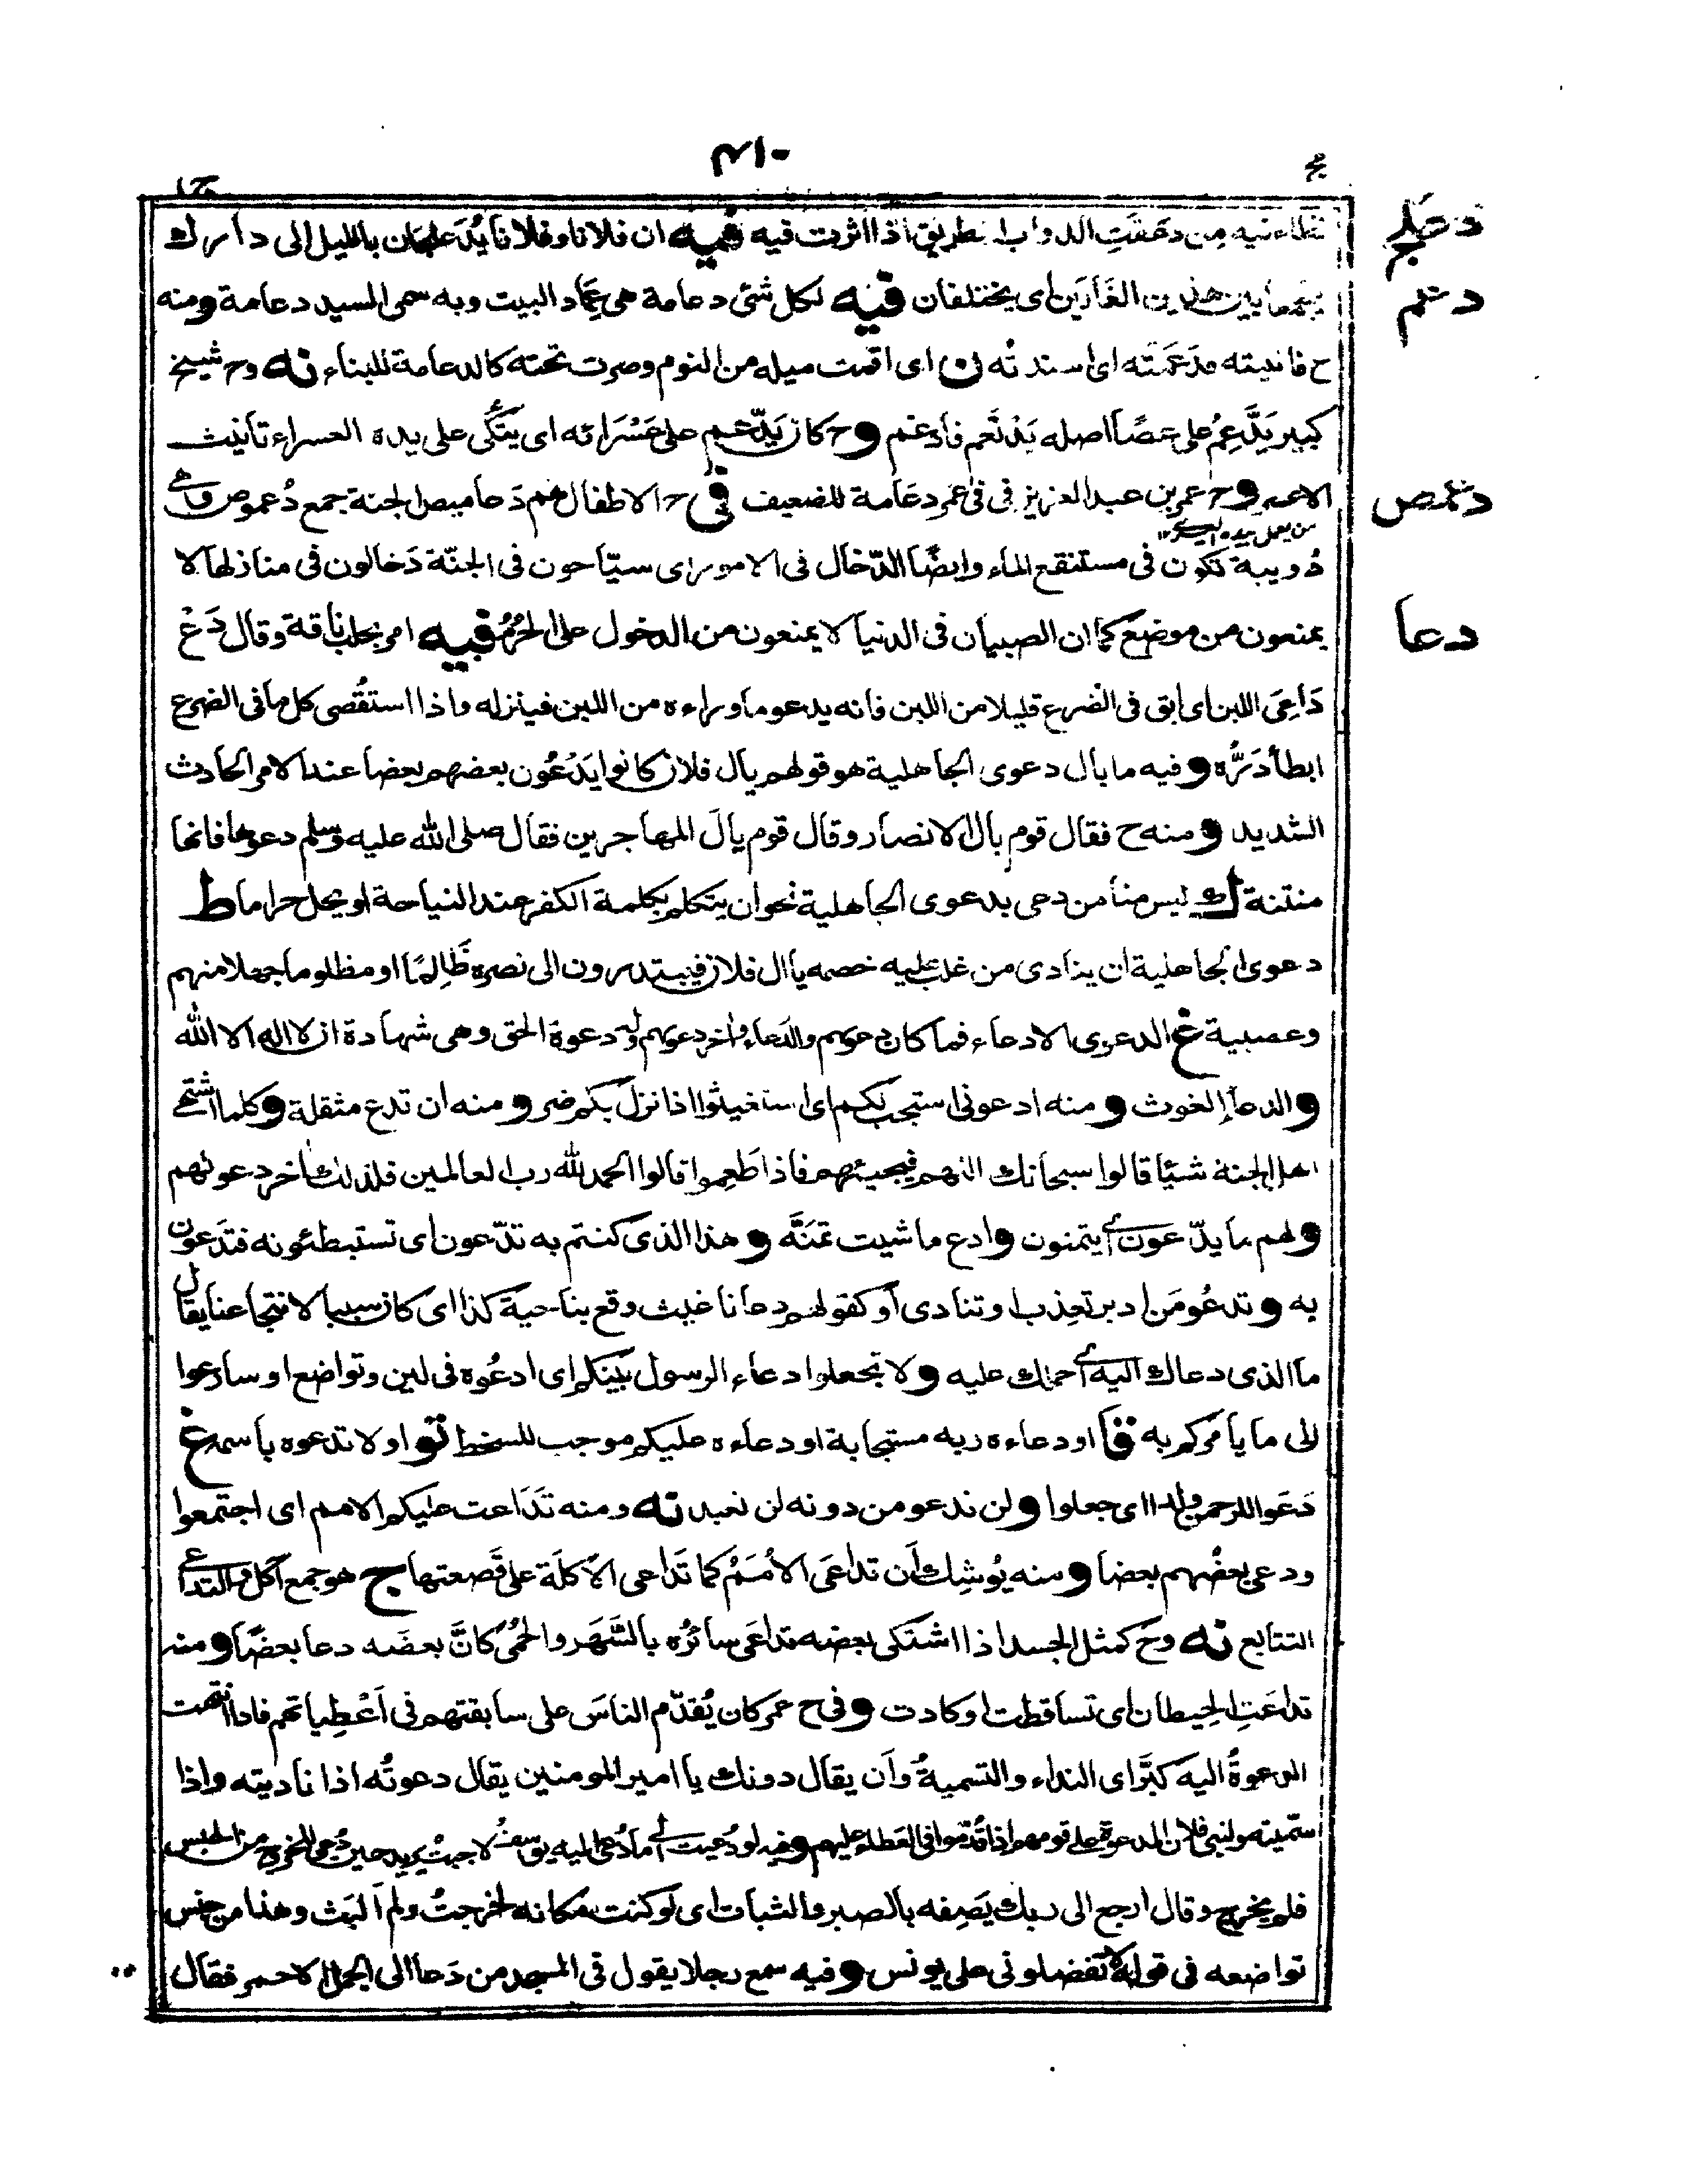 ٤١٠
دعلج
من دعقت الدواب الطريق اذا اثرت فيه فيه ان فلانا وفلانا يُدَعلجان بالليل الى دارك
دعم
ليجمعا بين هذين الغَارَين اى يختلفان فيه لكل شئ دعامة هى عِمَاد البيت وبه سمى السيد دعامة ومنه
ح فاتيته فدَعَمته اى اسندته ن اى اقمت ميله من النوم وصرت تحته كالدعامة للبناء نه وح شيخ
كبير يَدَّعِمُ على عصًا اصله يَدْتَعم فادغم وح كان يَدّعم على عَسْرَائه اى يتّكئ على يده العسراء تانيث
دعمص
الاعسر وح عمر بن عبد العزيز فى فى عمر دعَامة للضعيف فى ح الاطفال هم دَعاميص الجنة جمع دُعموص وهى
من يعمل بيده اليسرى ١٢
دُويبة تكون فى مستنقع الماء وايضًا الدّخال فى الامور اى سيّاحون فى الجنّة دَخالون فى منازلها لا
دعا
يمنعون من موضع كما ان الصبيان فى الدنيا لا يمنعون من الدخول على الحُرُم فيه امر بحلب ناقة وقال دَعْ
دَاعِىَ اللبن اى ابق فى الضرع قليلا من اللبن فانه يدعو ما وراءه من اللبن فينزله واذا استقُصى كل ما فى الضرع
ابطأ دَرُّه وفيه ما بال دعوى الجاهلية هو قولهم يال فلان كانوا يَدْعُون بعضهم بعضا عند الامر الحادث
الشديد ومنه ح فقال قوم يال الانصار وقال قوم يالَ المهاجرين فقال صلى الله عليه وسلم دعوها فانها
منتنة ك ليس منا من دعى بدعوى الجاهلية نحو ان يتكلم بكلمة الكفر عند النياحة او يحل حراما ط
دعوى الجاهلية ان ينادى من غلب عليه خصمه يا ال فلان فيبتدرون الى نصره ظَالِمًا او مظلوما جهلا منهم
وعصبية غ الدعوى الادعاء فما كان دعوٰهم والدعاء واخر دعوٰهم وله دعوة الحق وهى شهادة ان لا اله الا الله
والدعا الغوث ومنه ادعونى استجب لكم اى استغيثوا اذا نزل بكم ضر ومنه ان تدع مثقلة وكلما اشتهى
اهل الجنة شيئا قالوا سبحانك اللهم فيجيئهم فاذا طَعِموا قالوا الحمد لله رب العالمين فذلك اخر دعوٰنهم
ولهم ما يدّعون اى يتمنون وادع ما شيت تمَنَّه وهذا الذى كنتم به تدّعون اى تستبطئونه فتَدعون
به وتدعُو مَن ادبر تعذب او تنادى او كقولهم دعانا غيث وقع بناحية كذا اى كان سببا لانتجاعنا يقال
ما الذى دعاك اليه اى حملك عليه ولا تجعلوا دعاء الرسول بينكم اى ادعُوه فى لين وتواضع او سارعوا
الى ما يأمركم به قا او دعاءه ربه مستجابة او دعاءه عليكم موجب للسخط تو او لا تدعوه باسمه غ
دَعَوا للرحمن ولدا اى جعلوا ولن ندعو من دونه لن نعبد نه ومنه تَدَاعت عليكم الامم اى اجتمعوا
ودعى بعضُهم بعضا ومنه يُوشِك اَن تداعَى الاُمَمُ كما تَداعى الاَكَلَة على قَصعتها ج هو جمع اٰكل والتداعى
التتابع نه وح كمثل الجسد اذا اشتكى بعضه تداعى سائرُه بالسَّهَر والحُمّى كانَّ بعضَه دعا بعضًا ومنه
تداعَتِ الحِيطان اى تساقطت او كادت وفى ح عمر كان يُقدّم الناسَ على سابقتهم فى اَعْطِياتهم فاذا انتهت
الدعوةُ اليه كبَّر اى النداء والتسميةُ واَن يقال دونك يا امير المومنين يقال دعوتُه اذا ناديته واذا
سمّيته ولبنى فلان الدعوة على قومهم اذا قُدّموا فى العطاء عليهم وفيه لو دُعيت الى ما دُعى اليه يوسفُ لاجبتُ يريد حين دُعى للخروج من الحبس
فلم يخرج وقال ارجع الى ربك يَصِفه بالصبر والثبات اى لو كنت مكانه لخرجتُ ولم اَلبَث وهذا من جنس
تواضعه فى قوله لا تفضلونى على يونس وفيه سمع رجلا يقول فى المسجد من دَعا الى الجمل الاحمر فقال